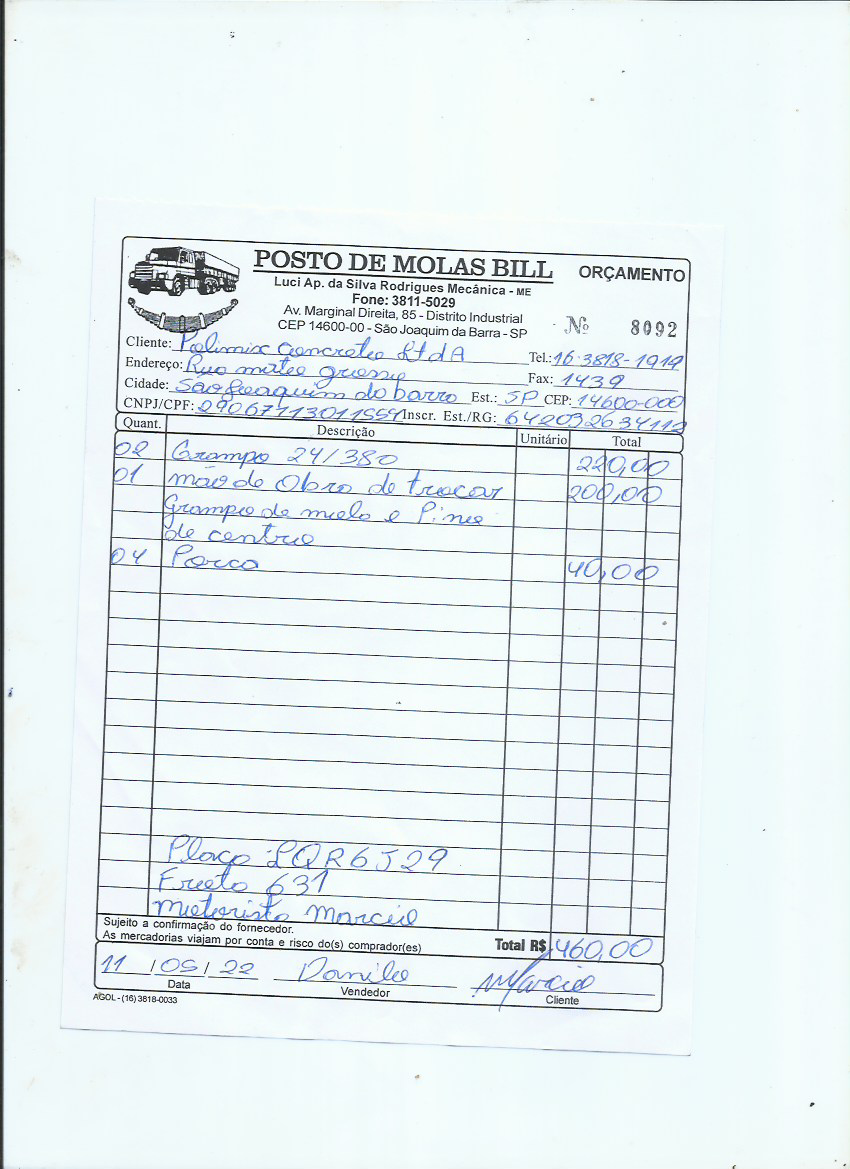 POSTO DE MOLAS BILL
ORÇAMENTO
Luci Ap. da Silva Rodrigues Mecânica - ME
Fone: 3811-5029
Av. Marginal Direita, 85 - Distrito Industrial
CEP 14600-00 - São Joaquim da Barra - SP
Nº 8092
Cliente: Polimix Concreto LtdA Tel.: 16-3818-1919
Endereço: Rua mato grosso Fax: 1439
Cidade: São Joaquim do barra Est.: SP CEP: 14600-000
CNPJ/CPF: 29067113011559 Inscr. Est./RG: 642032634112
Quant. Descrição Unitário Total
02 Grampo 24/380 220,00
01 mão de Obra de trocar 200,00
Grampo de mola e Pino
de centro
04 Porca 40,00
Placa: LQR6J29
Frota 631
Motorista Marcio
Sujeito a confirmação do fornecedor.
As mercadorias viajam por conta e risco do(s) comprador(es) Total R$ 460,00
11 / 05 / 22 Danilo Marcio
Data Vendedor Cliente
AGOL - (16) 3818-0033